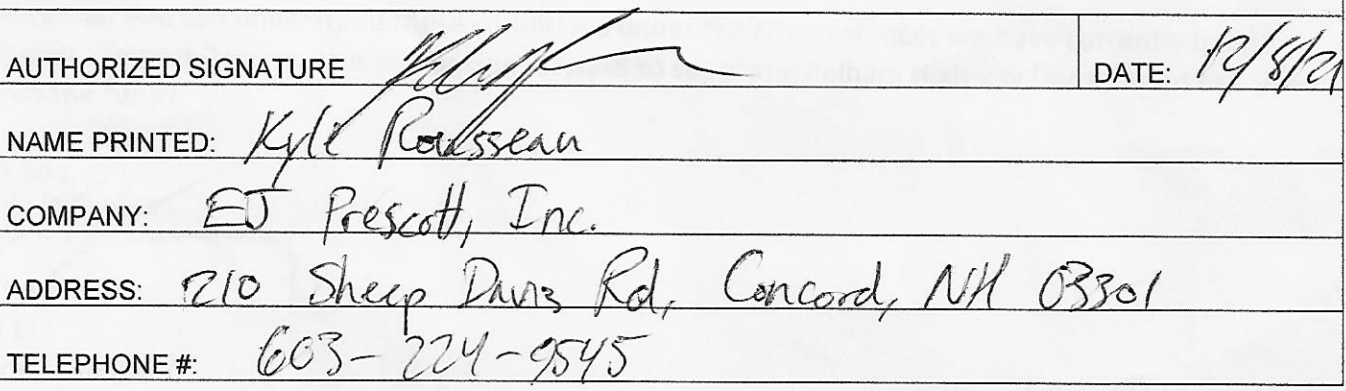 AUTHORIZED SIGNATURE DATE: 12/8/21
NAME PRINTED: Kyle Rousseau
COMPANY: EJ Prescott, Inc.
ADDRESS: 210 Sheep Davis Rd, Concord, NH 03301
TELEPHONE #: 603-224-9545